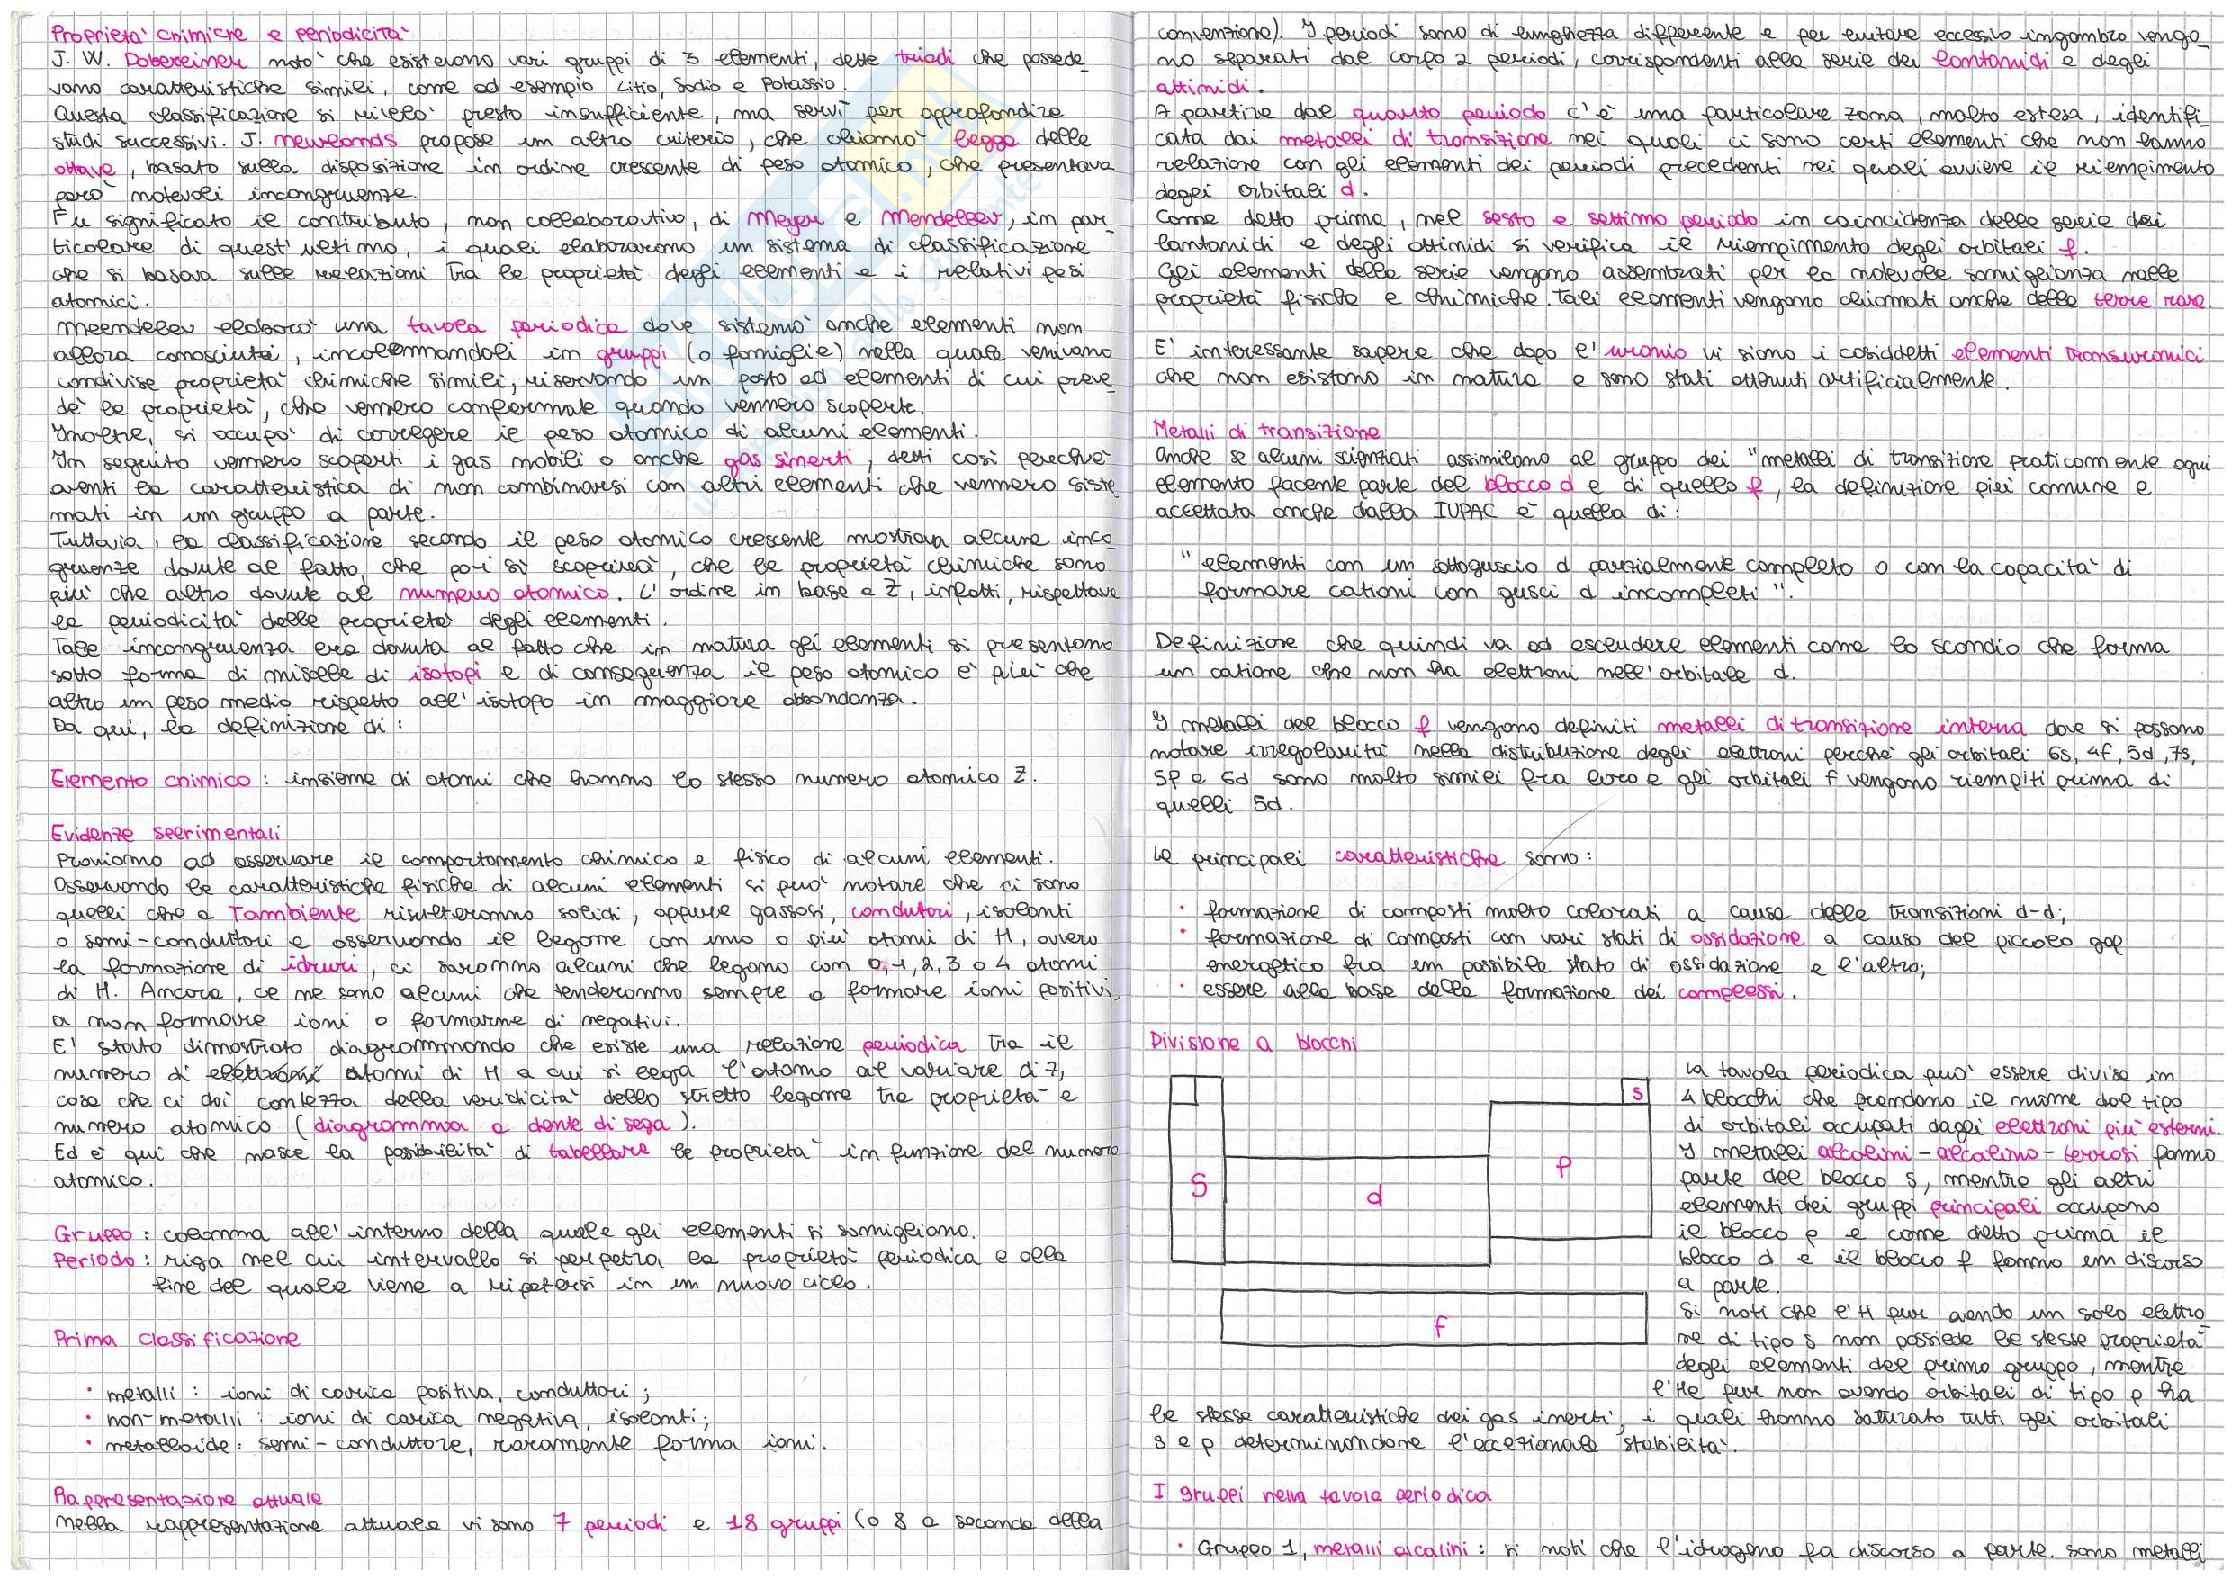 Proprietà chimiche e periodicità
J. W. Dobereiner notò che esistevano vari gruppi di 3 elementi, dette triadi che possede-
vano caratteristiche simili, come ad esempio Litio, Sodio e Potassio.
Questa classificazione si rivelò presto insufficiente, ma servì per approfondire
studi successivi. J. Newlands propose un altro criterio, che chiamò legge delle
ottave, basato sulla disposizione in ordine crescente di peso atomico, che presentava
però notevoli incongruenze.
Fu significato il contributo, non collaborativo, di Meyer e Mendeleev, in par-
ticolare di quest'ultimo, i quali elaborarono un sistema di classificazione
che si basava sulle relazioni tra le proprietà degli elementi e i relativi pesi
atomici.
Meendeleev elaborò una tavola periodica dove sistemò anche elementi non
allora conosciuti, incolonnandoli in gruppi (o famiglie) nella quale venivano
condivise proprietà chimiche simili, riservando un posto ad elementi di cui preve-
dè le proprietà, che vennero confermate quando vennero scoperte.
Inoltre, si occupò di correggere il peso atomico di alcuni elementi.
In seguito vennero scoperti i gas nobili o anche gas sinerti, detti così perchè
aventi la caratteristica di non combinarsi con altri elementi che vennero siste
mati in un gruppo a parte.
Tuttavia, la classificazione secondo il peso atomico crescente mostrava alcune inco-
gruenze dovute al fatto, che poi si scoprirà, che le proprietà chimiche sono
più che altro dovute al numero atomico. L'ordine in base a Z, infatti, rispettava
la periodicità delle proprietà degli elementi.
Tale incongruenza era dovuta al fatto che in natura gli elementi si presentano
sotto forma di miscele di isotopi e di conseguenza il peso atomico è più che
altro un peso medio rispetto all'isotopo in maggiore abbondanza.
Da qui, la definizione di:
Elemento chimico: insieme di atomi che hanno lo stesso numero atomico Z.
Evidenze seerimentali
Proviamo ad osservare il comportamento chimico e fisico di alcuni elementi.
Osservando le caratteristiche fisiche di alcuni elementi si può notare che ci sono
quelli che a Tambiente risulteranno solidi, oppure gassosi, condutori, isolanti
o semi-conduttori e osservando il legame con uno o più atomi di H, ovvero
la formazione di idruri, ci saranno alcuni che legano con 0,1,2,3 o 4 atomi
di H. Ancora, ce ne sono alcuni che tenderanno sempre a formare ioni positivi,
a non formare ioni o formarne di negativi.
E' stato dimostrato diagrammando che esiste una relazione periodica tra il
numero di atomi di H a cui si lega l'atomo al variare di Z,
cosa che ci dà contezza della veridicità dello stretto legame tra proprietà e
numero atomico (diagramma a dente di sega).
Ed è qui che nasce la possibilità di tabellare le proprietà in funzione del numero
atomico.
Gruppo: colonna all'interno della quale gli elementi si somigliano.
Periodo: riga nel cui intervallo si perpetra la proprietà periodica e alla
fine del quale viene a ripetersi in un nuovo ciclo.
Prima classificazione
• metalli: ioni di carica positiva, conduttori;
• non-metalli: ioni di carica negativa, isolanti;
• metalloide: semi-conduttore, raramente forma ioni.
Rappresentazione attuale
Nella rappresentazione attuale vi sono 7 periodi e 18 gruppi (o 8 a seconda della
convenzione). I periodi sono di lunghezza differente e per evitare eccessivo ingombro vengo-
no separati dal corpo 2 periodi, corrispondenti alla serie dei lantanidi e degli
attinidi.
A partire dal quarto periodo c'è una particolare zona, molto estesa, identifi-
cata dai metalli di transizione nei quali ci sono certi elementi che non hanno
relazione con gli elementi dei periodi precedenti nei quali avviene il riempimento
degli orbitali d.
Come detto prima, nel sesto e settimo periodo in coincidenza delle serie dei
lantanidi e degli attinidi si verifica il riempimento degli orbitali f.
Gli elementi delle serie vengono assembrati per la notevole somiglianza nelle
proprietà fisiche e chimiche. Tali elementi vengono chiamati anche delle terre rare.
E' interessante sapere che dopo l'uranio vi siano i cosiddetti elementi transuranici
che non esistono in natura e sono stati ottenuti artificialmente.
Metalli di transizione
Anche se alcuni scienziati assimilano al gruppo dei "metalli di transizione praticamente ogni
elemento facente parte del blocco d e di quello f, la definizione più comune e
accettata anche dalla IUPAC è quella di:
"elementi con un sottoguscio d parzialmente completo o con la capacità di
formare cationi con gusci d incompleti".
Definizione che quindi va ad escludere elementi come lo scandio che forma
un catione che non ha elettroni nell'orbitale d.
I metalli del blocco f vengono definiti metalli di transizione interna dove si possono
notare irregolarità nella distribuzione degli elettroni perchè gli orbitali 6s, 4f, 5d, 7s,
5f e 6d sono molto simili fra loro e gli orbitali f vengono riempiti prima di
quelli 5d.
Le principali caratteristiche sono:
• formazione di composti molto colorati a causa delle transizioni d-d;
• formazione di composti con vari stati di ossidazione a causa del piccolo gap
energetico fra un possibile stato di ossidazione e l'altro;
• essere alla base della formazione dei complessi.
Divisione a blocchi
S
d
p
s
f
La tavola periodica può essere divisa in
4 blocchi che prendono il nome dal tipo
di orbitali occupati dagli elettroni più esterni.
I metalli alcalini-alcalino-terrosi fanno
parte del blocco s, mentre gli altri
elementi dei gruppi principali occupano
il blocco p e come detto prima il
blocco d e il blocco f fanno un discorso
a parte.
Si noti che l'H pur avendo un solo elettro-
ne di tipo s non possiede le stesse proprietà
degli elementi del primo gruppo, mentre
l'He pur non avendo orbitali di tipo p ha
le stesse caratteristiche dei gas inerti, i quali hanno saturato tutti gli orbitali
s e p determinandone l'accezionale stabilità.
I gruppi nella tavola periodica
• Gruppo 1, metalli alcalini: si noti che l'idrogeno fa discorso a parte. Sono metalli